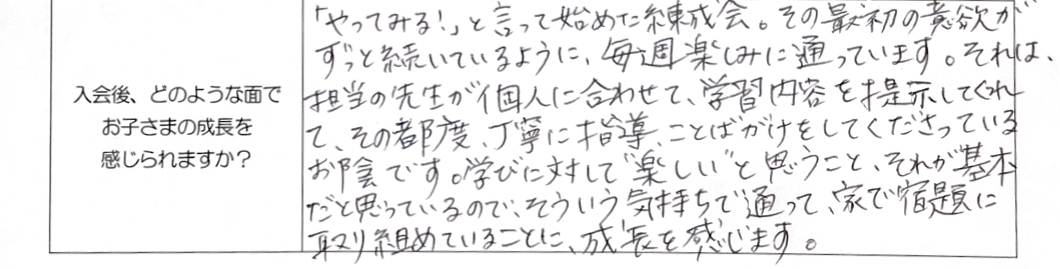 入会後、どのような面で
お子さまの成長を
感じられますか？
「やってみる！」と言って始めた練成会。その最初の意欲が
ずっと続いているように、毎週楽しみに通っています。それは、
担当の先生が個人に合わせて、学習内容を提示してくれ
て、その都度、丁寧に指導、ことばがけをしてくださっている
お陰です。学びに対して"楽しい"と思うこと、それが基本
だと思っているので、そういう気持ちで通って、家で宿題に
取り組めていることに、成長を感じます。